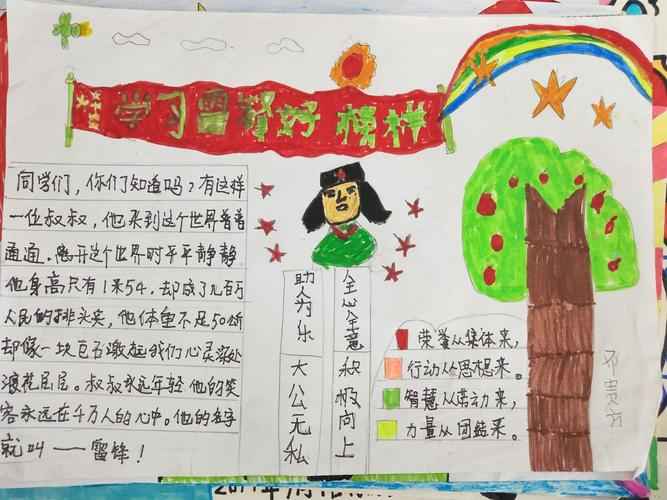 学习雷锋好榜样
同学们，你们知道吗？有这样
一位叔叔，他来到这个世界普普
通通．离开这个世界时平平静静
他身高只有1米54，却成了几百万
人民的排头兵，他体重不足50斤
却像一块巨石激起我们心灵深处
浪花层层。叔叔永远年轻 他的笑
容永远在千万人的心中。他的名字
就叫——雷锋！
助人为乐
大公无私
全心全意
积极向上
荣誉从集体来，
行动从思想来。
智慧从劳动来，
力量从团结来。